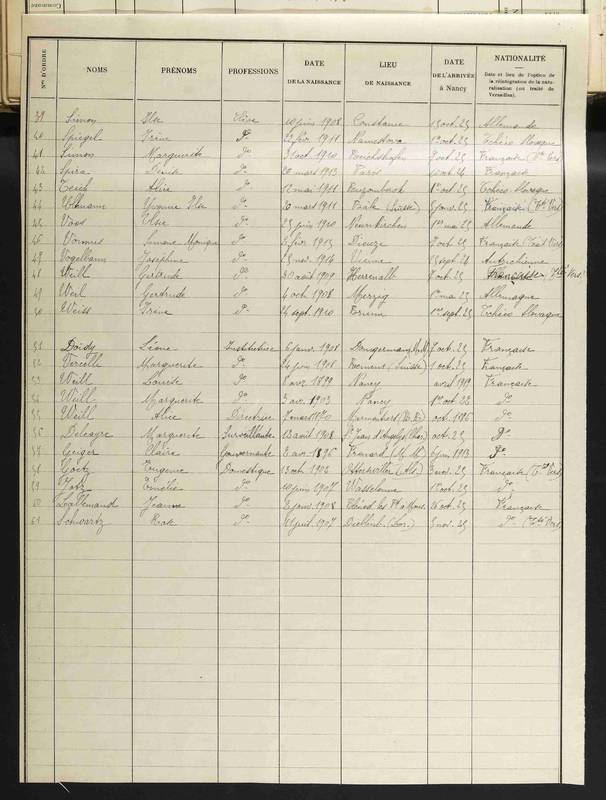 Nos D'ORDRE NOMS PRÉNOMS PROFESSIONS DATE DE LA NAISSANCE LIEU DE NAISSANCE DATE DE L'ARRIVÉE à Nancy NATIONALITÉ
Date et lieu de l'option de la réintégration de la naturalisation (ou traité de Versailles).
39 Simon Ilse Elève 10 juin 1908 Constance 15 oct. 25 Allemande
40 Spiegel Irène do 22 fév. 1911 1er oct. 25 Tchéco Slovaque
41 Simon Marguerite do 31 oct. 1910 Reichshofen 7 oct. 25 Française (Tté Vers)
42 Spira Denise do 20 mars 1913 Paris oct. 24 Française
43 Alice do 12 mai 1911 1er oct. 25 Tchéco-Slovaque
44 Ullmann Yvonne Ilse do 20 mars 1911 Bâle (Suisse) 5 janv. 25 Française (Tté Vers)
45 Voos Ilse do 25 juin 1910 Neunkirchen 1er mai 25 Allemande
46 Vormus Simone Monique do 2 fév. 1913 Dieuze 7 oct. 25 Française (Tté Vers)
47 Vogelbaum Joséphine do nov. 1914 Vienne 15 sept. 24 Autrichienne
48 Weill Gertrude do 30 août 1909 Herrenalb 7 oct. 25 Française (Tté Vers)
49 Weil Gertrude do 4 oct. 1908 Merzig 1er mai 25 Allemagne
50 Weiss Irène do 14 sept. 1910 Brunn 1er sept. 25 Tchéco Slovaque
51 Léone Institutrice 6 janv. 1908 7 oct. 25 Française
52 Marguerite do 24 juin 1908 (Suisse) 1 oct. 25 Française
53 Weill Louise do 8 avr. 1899 Nancy avril 1919 Française
54 Weill Marguerite do 3 av. 1903 Nancy 1er oct. 22 do
55 Weill Alice Directrice 7 mars oct. 1916 do
56 Marguerite Surveillante 13 août 1908 St Jean d'Angely oct. 25 do
57 Geiger Claire Gouvernante 2 av. 1896 (M. M.) 6 juin 1913 do
58 Eugénie Domestique 13 oct. 1903 Otterswiller (Als.) 3 nov. 25 Française (Tté Vers)
59 Emélie do 10 juin 1907 Wasselonne 15 oct. 25 do
60 Lallemand Jeanne do 2 janv. 1908 oct. 25 Française
61 Schwartz Rose do 11 juil. 1907 (Lor.) 5 nov. 25 do (Tté Vers)